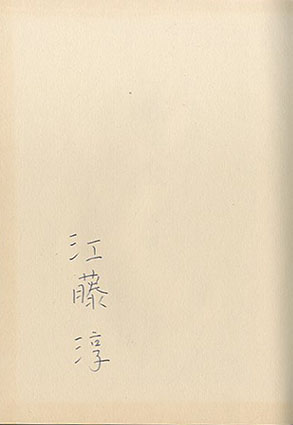 江藤淳